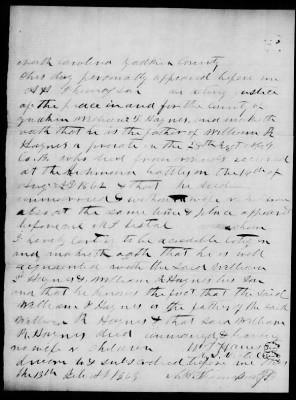 north carolina Yadkin County
this day personally appeared before me
an acting justice
of the peace in and for the county of
Yadkin William T Haynes, and maketh
oath that he is the father of William R
Haynes a private in the 28th Regt of N C
who died from wounds received
at the Richmond battles on the 10th of
Aug AD 1862 & that he died
unmarried & without wife or children
also at the same time & place appeared
before me whom
I hereby certify to be a credible citizen
and maketh oath that he is well
acquainted with the said William
T Haynes & William R Haynes his son
and that he knows the fact that the said
William T Haynes is the father of the said
William R Haynes & that said William
R Haynes died unmarried & leaving
no wife or children W T Haynes
sworn to & subscribed before me this
the 13th Feb AD 1863